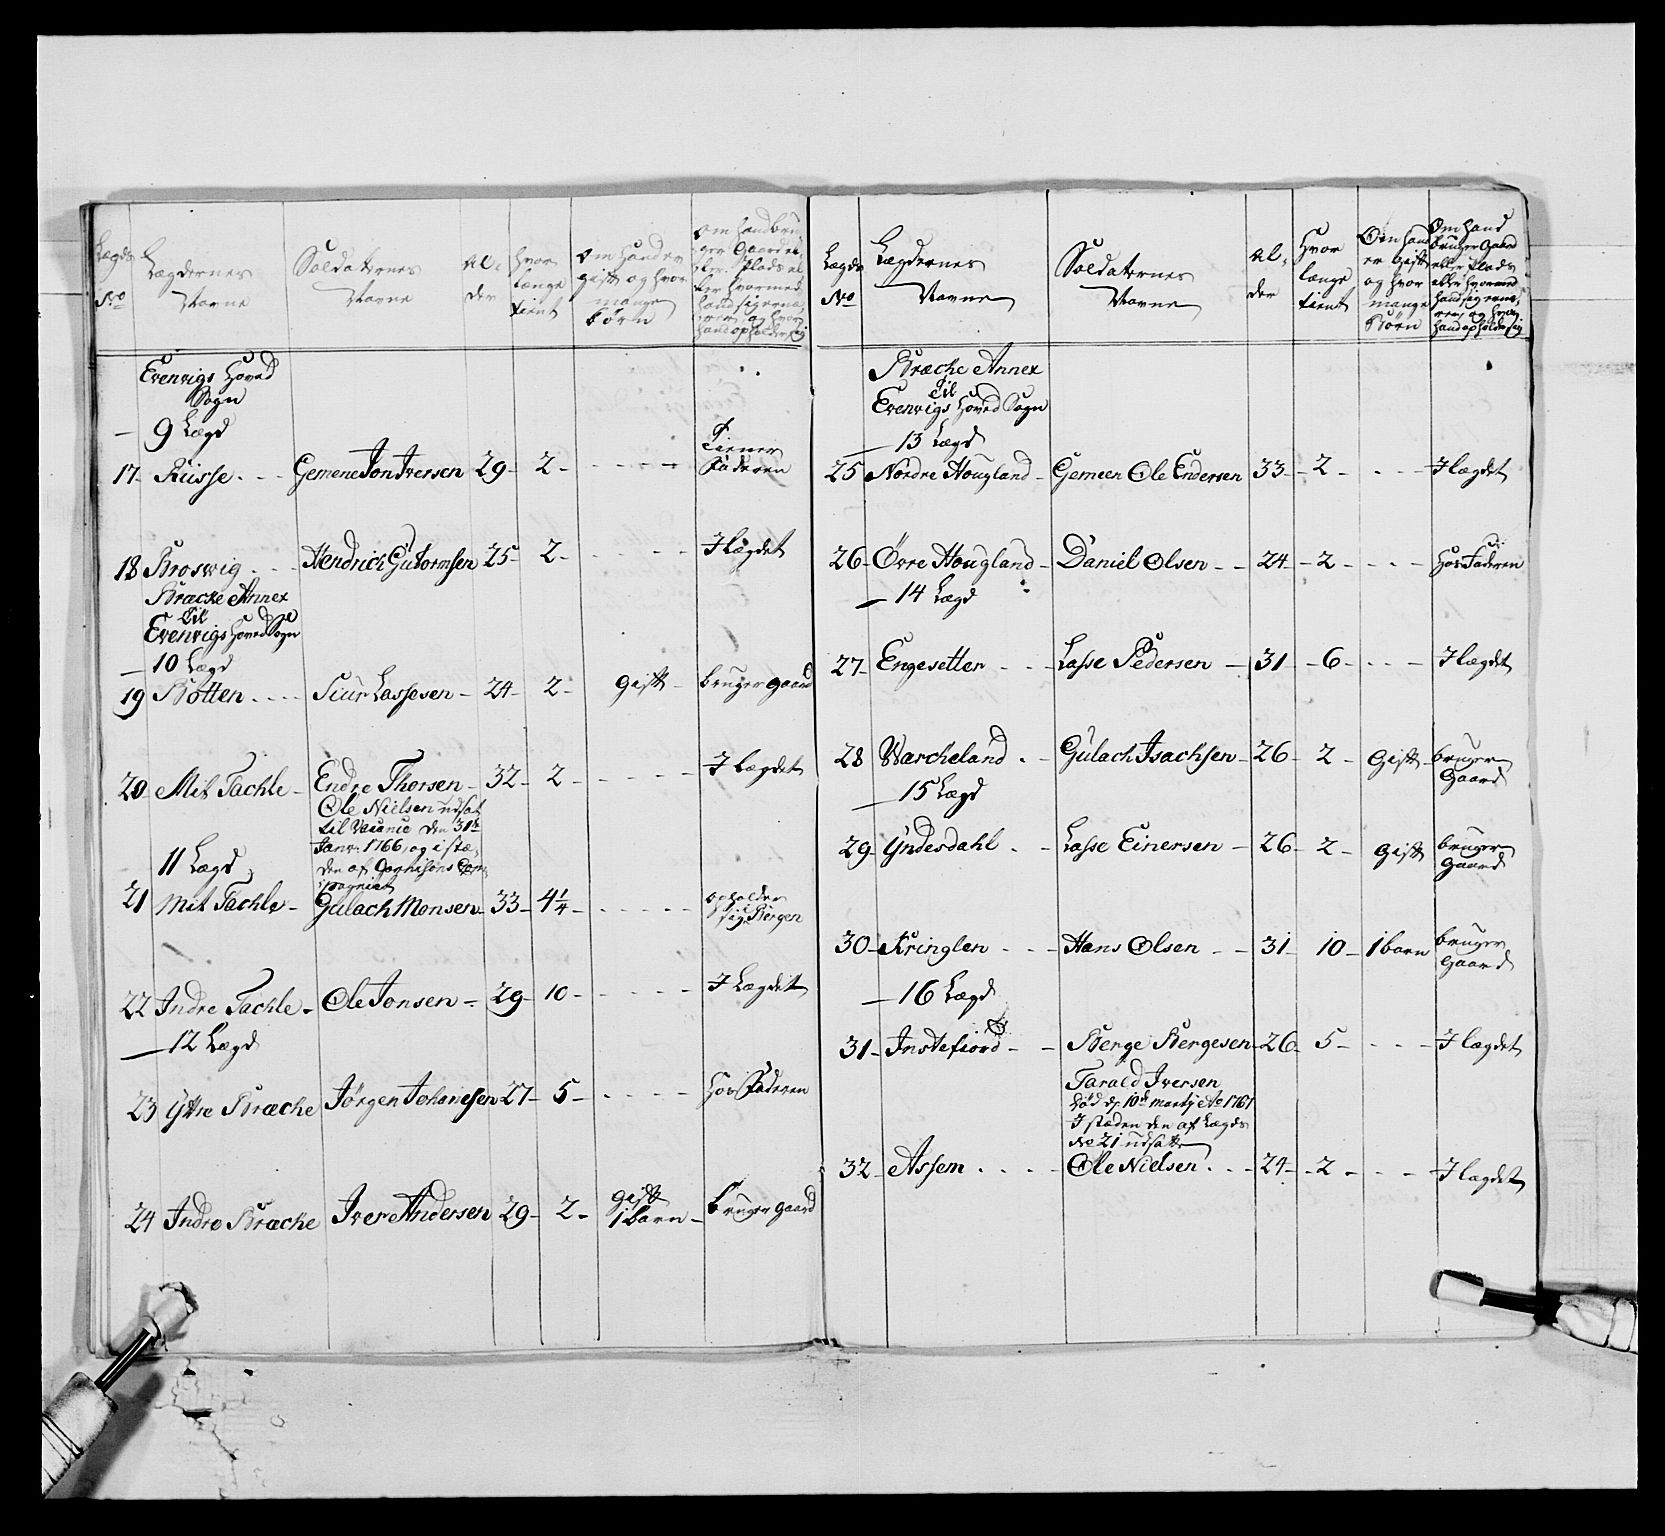 Lægds No
Lægdernes Navne
Soldaternes Navne
Al- der
Hvor længe tient
Om Hand er gift og hvor mange børn
Om hand bru- ger Gaard el- ler Plads el- ler hvormed hand sig ernæ- rer, og hvor hand opholder sig
Evenvigs Hoved
Sogn
9 Lægd
17 Riisse Gemene Jon Iversen 29 2 Tiener Faderen
18 Broswig Hendrich Gutormsen 25 2 I lægdet
Bræcke Annex
Til
Evenvigs Hoved Sogn
10 Lægd
19 Botten Siur Lassesen 24 2 gift bruger gaard
20 Mit Tachle Endre Thorsen 32 2 I lægdet
Ole Nielsen udsat
til Vacance den 31te
Janv: 1766, og i stæ-
den af Garnisons Com-
pagniet
11 Lægd
21 Mit Tachle Gulach Monsen 33 4 1/4 opholder sig i Bergen
22 Indre Tachle Ole Jonsen 29 10 I Lægdet
12 Lægd
23 Yttre Bræcke Jørgen Johanesen 27 5 Hos Faderen
24 Indre Bræcke Iver Andersen 29 2 gift 1 barn Bruger gaard
Lægds No
Lægdernes Navne
Soldaternes Navne
Al- der
Hvor længe tient
Om hand er gift og hvor mange Børn
Om hand bruger Gaard eller Plads eller hvormed hand sig ernæ- rer, og hvor hand opholder sig
Bræcke Annex
Til
Evenvigs Hoved Sogn
13 Lægd
25 Nordre Hougland Gemeen Ole Endersen 33 2 I lægdet
26 Øvre Hougland Daniel Olsen 24 2 Hos Faderen
14 Lægd
27 Engesetter Lasse Pedersen 31 6 I lægdet
28 Warcheland Gulach Isachsen 26 2 Gift bruger Gaard
15 Lægd
29 Yndesdahl Lasse Einersen 26 2 Gift bruger gaard
30 Kringlen Hans Olsen 31 10 1 barn bruger gaard
16 Lægd
31 Instefiord Berge Bergesen 26 5 I lægdet
Tarald Iversen
død d: 10de Marty Ao 1767
I stæden den af Lægds
No 21 udsatte
32 Assem Ole Nielsen 24 2 I lægdet